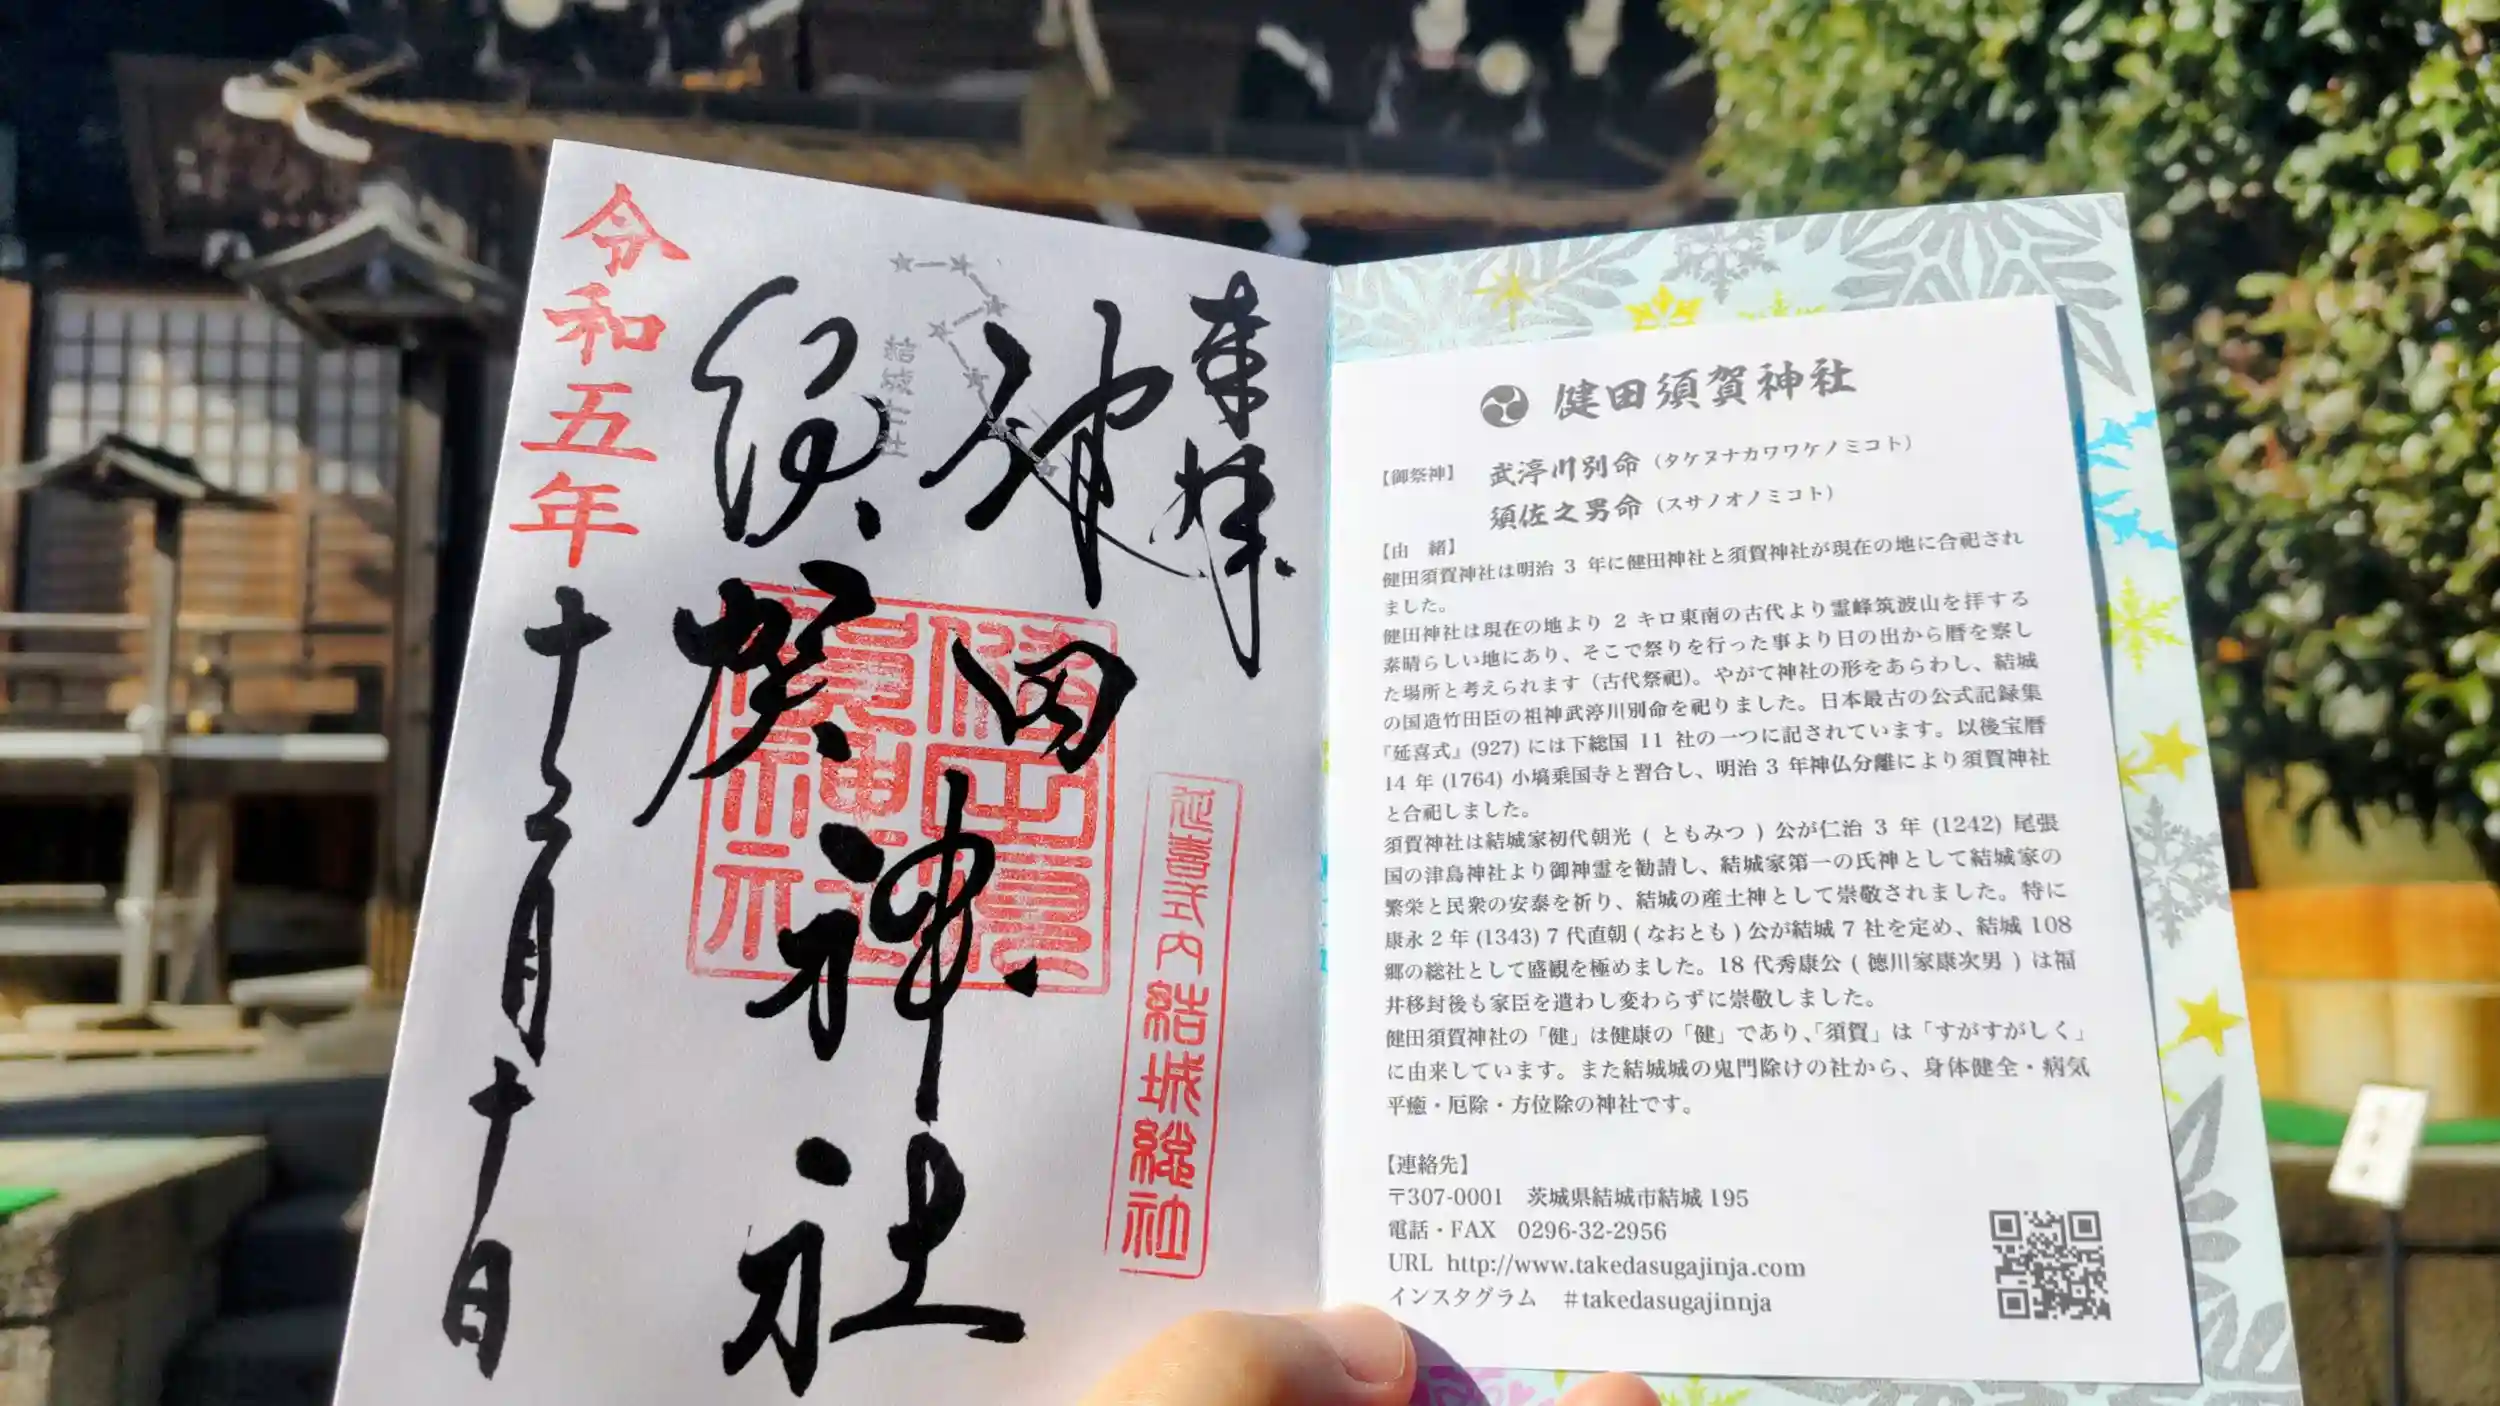 奉拝
健田
須賀
神社
令和五年
十二月十日
結城七社
延喜式内結城総社
健田須賀神社
【御祭神】 武渟川別命(タケヌナカワワケノミコト)
須佐之男命(スサノオノミコト)
【由 緒】
健田須賀神社は明治 3 年に健田神社と須賀神社が現在の地に合祀され
ました。
健田神社は現在の地より 2 キロ東南の古代より霊峰筑波山を拝する
素晴らしい地にあり、そこで祭りを行った事より日の出から暦を察し
た場所と考えられます(古代祭祀)。やがて神社の形をあらわし、結城
の国造竹田臣の祖神武渟川別命を祀りました。日本最古の公式記録集
『延喜式』(927) には下総国 11 社の一つに記されています。以後宝暦
14 年 (1764) 小塙乗国寺と習合し、明治 3 年神仏分離により須賀神社
と合祀しました。
須賀神社は結城家初代朝光 ( ともみつ ) 公が仁治 3 年 (1242) 尾張
国の津島神社より御神霊を勧請し、結城家第一の氏神として結城家の
繁栄と民衆の安泰を祈り、結城の産土神として崇敬されました。特に
康永 2 年 (1343) 7 代直朝 ( なおとも ) 公が結城 7 社を定め、結城 108
郷の総社として盛観を極めました。18 代秀康公 ( 徳川家康次男 ) は福
井移封後も家臣を遣わし変わらずに崇敬しました。
健田須賀神社の「健」は健康の「健」であり、「須賀」は「すがすがしく」
に由来しています。また結城城の鬼門除けの社から、身体健全・病気
平癒・厄除・方位除の神社です。
【連絡先】
〒307-0001 茨城県結城市結城 195
電話・FAX 0296-32-2956
URL http://www.takedasugajinja.com
インスタグラム #takedasugajinnja